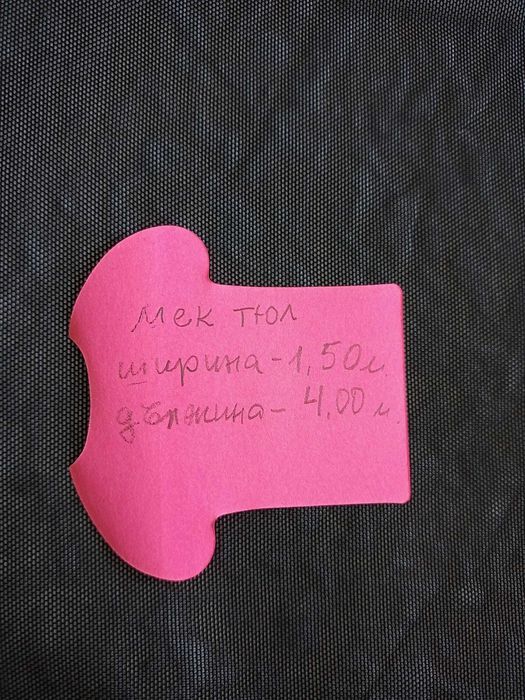 мек тюл
ширина - 1,50 м.
дължина - 4,00 м.